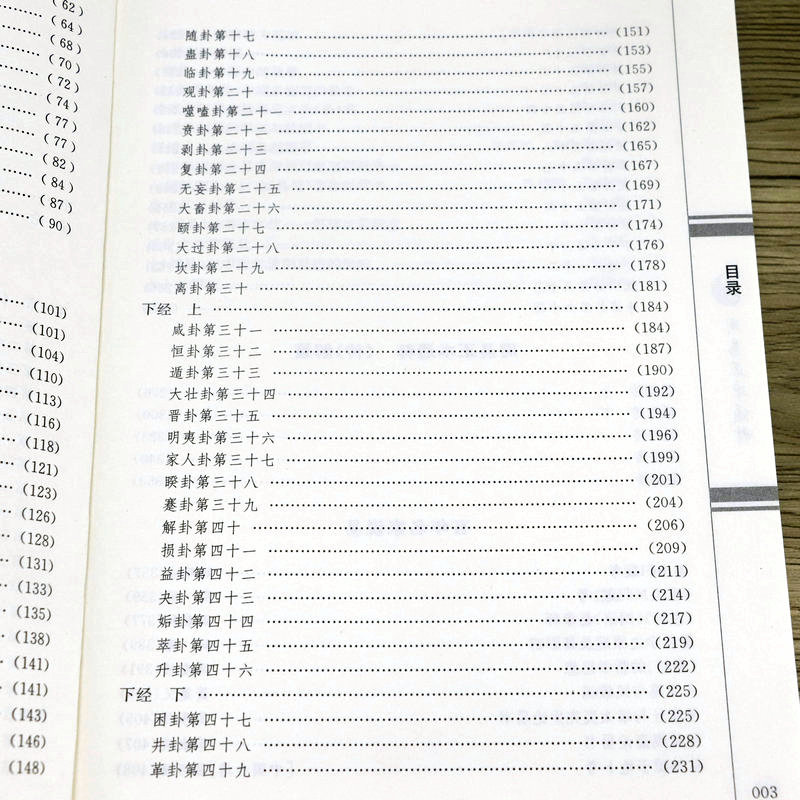 (62)
(64)
(68)
(70)
(72)
(74)
(77)
(77)
(82)
(84)
(87)
(90)
(101)
(101)
(104)
(110)
(113)
(116)
(118)
(121)
(123)
(126)
(128)
(131)
(133)
(135)
(138)
(141)
(141)
(143)
(146)
(148)
随卦第十七 (151)
蛊卦第十八 (153)
临卦第十九 (155)
观卦第二十 (157)
噬嗑卦第二十一 (160)
贲卦第二十二 (162)
剥卦第二十三 (165)
复卦第二十四 (167)
无妄卦第二十五 (169)
大畜卦第二十六 (171)
颐卦第二十七 (174)
大过卦第二十八 (176)
坎卦第二十九 (178)
离卦第三十 (181)
下经 上 (184)
咸卦第三十一 (184)
恒卦第三十二 (187)
遁卦第三十三 (190)
大壮卦第三十四 (192)
晋卦第三十五 (194)
明夷卦第三十六 (196)
家人卦第三十七 (199)
睽卦第三十八 (201)
蹇卦第三十九 (204)
解卦第四十 (206)
损卦第四十一 (209)
益卦第四十二 (211)
夬卦第四十三 (214)
姤卦第四十四 (217)
萃卦第四十五 (219)
升卦第四十六 (222)
下经 下 (225)
困卦第四十七 (225)
井卦第四十八 (228)
革卦第四十九 (231)
目录
003